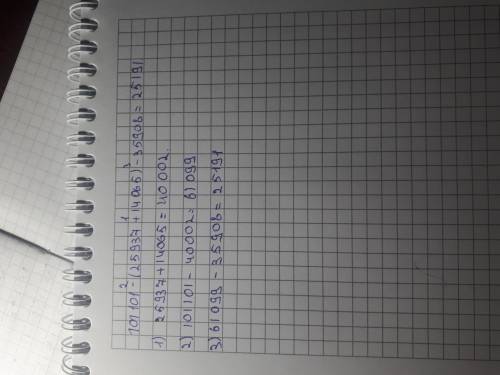 101101 - (25937 + 14065) - 35908 = 25191
1) 25937 + 14065 = 40002.
2) 101101 - 40002 = 61099
3) 61099 - 35908 = 25191